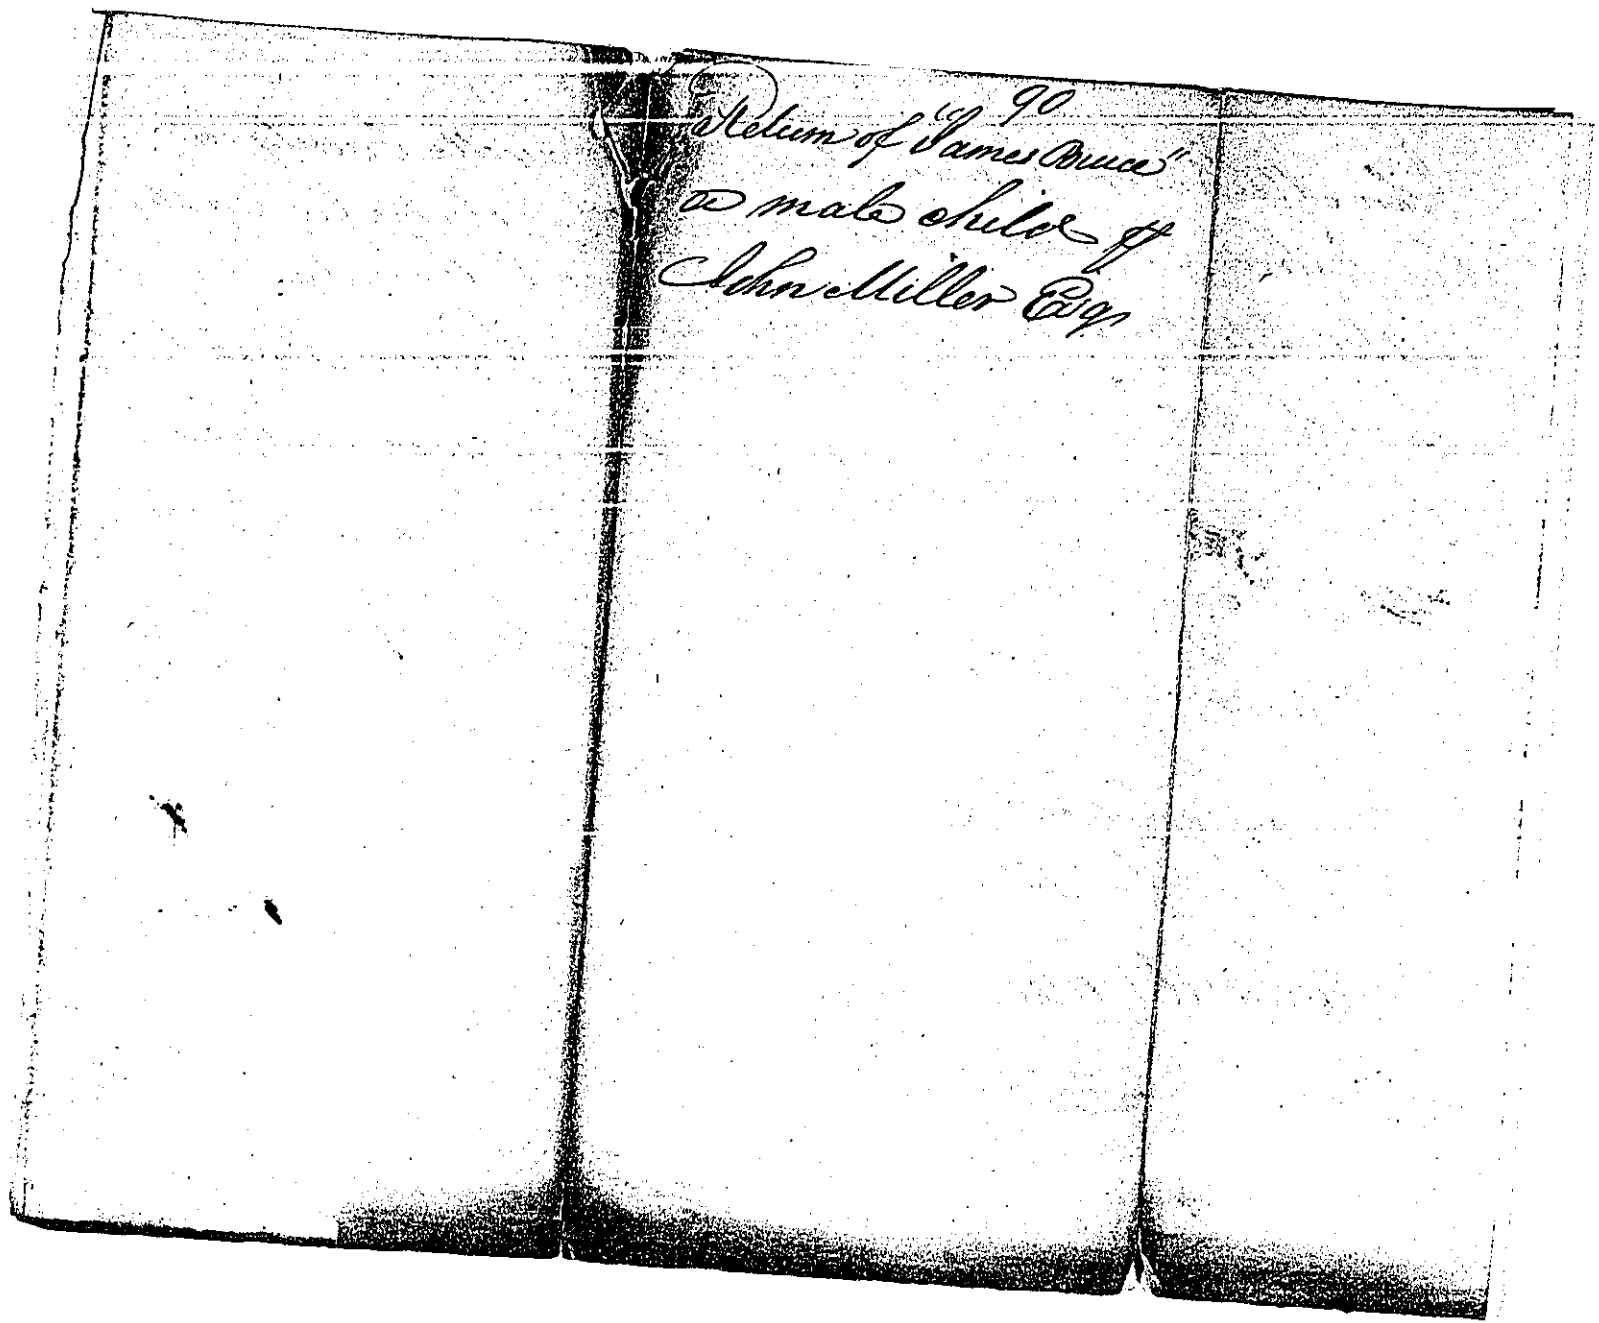 90
Return of "James Bruce"
a male child of
John Miller Esqr